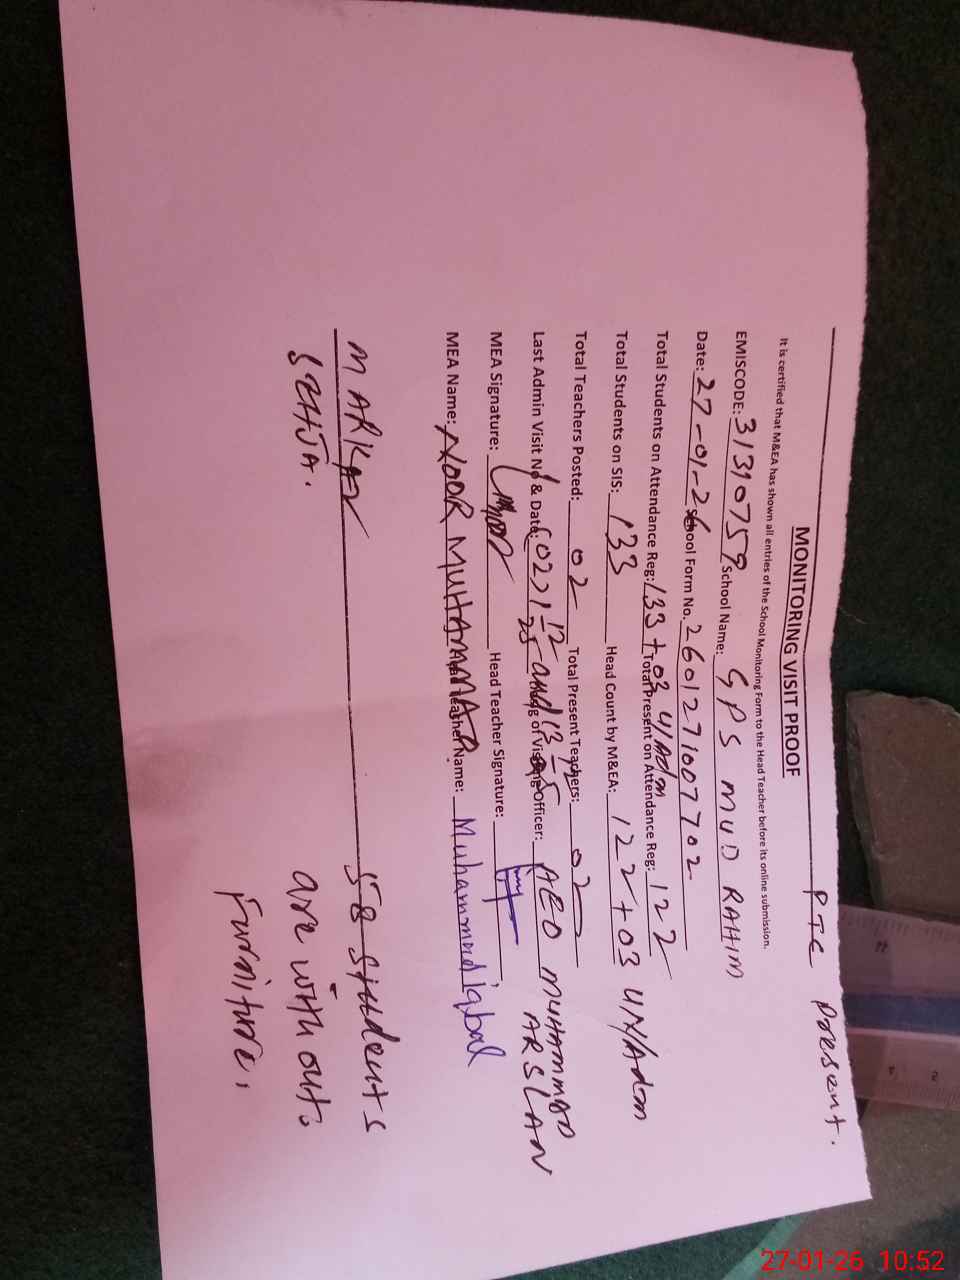 PTC Present.
MONITORING VISIT PROOF
It is certified that M&EA has shown all entries of the School Monitoring Form to the Head Teacher before its online submission.
EMISCODE: 31310759 School Name: GPS MUD RAHIM
Date: 27-01-26 School Form No. 2601271007702
Total Students on Attendance Reg: 133 + 03 U/Adm Total Present on Attendance Reg: 122
Total Students on SIS: 133 Head Count by M&EA: 122 + 03 UN/Adm
Total Teachers Posted: 02 Total Present Teachers: 02
Last Admin Visit No & Date: and Officer: AEO MUHAMMAD ARSLAN
MEA Signature: Head Teacher Signature:
MEA Name: NOOR MUHAMMAD Head Teacher Name: Muhammad iqbal
MARKAZ
58 students
are with out.
Furniture.
27-01-26 10:52